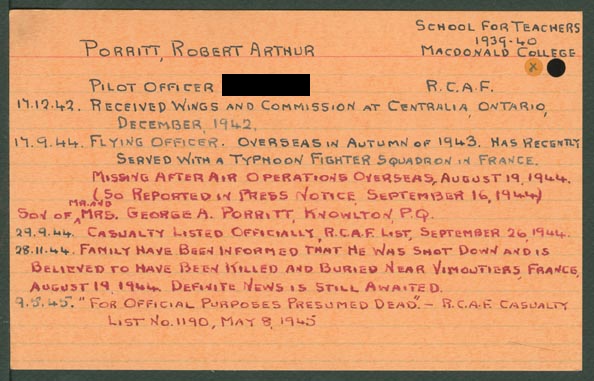 SCHOOL FOR TEACHERS
1939-40
MACDONALD COLLEGE
PORRITT, ROBERT ARTHUR
PILOT OFFICER R.C.A.F.
17.12.42. RECEIVED WINGS AND COMMISSION AT CENTRALIA, ONTARIO,
DECEMBER, 1942.
17.9.44. FLYING OFFICER. OVERSEAS IN AUTUMN OF 1943. HAS RECENTLY
SERVED WITH A TYPHOON FIGHTER SQUADRON IN FRANCE.
MISSING AFTER AIR OPERATIONS OVERSEAS, AUGUST 19, 1944.
(SO REPORTED IN PRESS NOTICE, SEPTEMBER 16, 1944)
SON OF MR. AND MRS. GEORGE A. PORRITT, KNOWLTON, P.Q.
29.9.44. CASUALTY LISTED OFFICIALLY, R.C.A.F. LIST, SEPTEMBER 26, 1944.
28.11.44. FAMILY HAVE BEEN INFORMED THAT HE WAS SHOT DOWN AND IS
BELIEVED TO HAVE BEEN KILLED AND BURIED NEAR VIMOUTIERS, FRANCE,
AUGUST 19, 1944. DEFINITE NEWS IS STILL AWAITED.
9.5.45. "FOR OFFICIAL PURPOSES PRESUMED DEAD". - R.C.A.F. CASUALTY
LIST NO. 1190, MAY 8, 1945